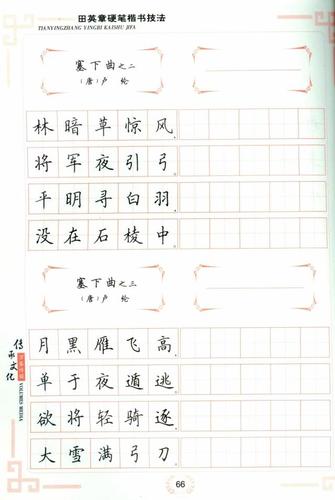 田英章硬笔楷书技法
TIANYINGZHANG YINGBI KAISHU JIFA
塞下曲之二
（唐）卢纶
林暗草惊风
将军夜引弓
平明寻白羽
没在石棱中
塞下曲之三
（唐）卢纶
月黑雁飞高
单于夜遁逃
欲将轻骑逐
大雪满弓刀
传承文化
VOLUMES MEDIA
66